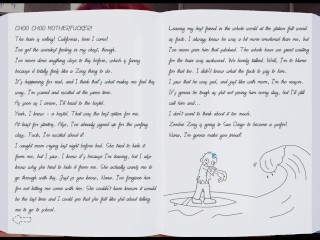 CHOO CHOO MOTHERFUCKERS!
The train is rolling! California, here I come!
I've got the weirdest feeling in my chest, though.
I've never done anything close to this before, which is funny
because it totally feels like a Zoey thing to do.
It's happening for real, and I think that's what makes me feel this
way. I'm scared and excited at the same time.
As soon as I arrive, I'll head to the hostel.
Yeah, I know - a hostel. That was the best option for me.
At least for starters. Also, I've already signed up for the surfing
class. Fuck, I'm excited about it!
I caught mom crying last night before bed. She tried to hide it
from me, but I saw. I know it's because I'm leaving, but I also
know why she tried to hide it from me. She actually wants me to
go through with this. Just so you know, Mama, I've forgiven her
for not letting me come with her. She couldn't have known it would
be the last time and I could see that she felt like shit about telling
me to go to school.
Leaving my best friend in the whole world at the station felt weird
as fuck. I always knew he was a bit more emotional than me, but
I've never seen him that quiet. The whole time we spent waiting
for the train was awkward. We barely talked. Well, I'm to blame
for that too. I didn't know what the fuck to say to him.
I gave that to my dad, and just like with mom, I'm the reason.
It's gonna be tough as shit not seeing him every day, but I'll still
call him and...
I don't want to think about it too much.
Zombie Zoey is going to San Diego to become a surfer!
Mama, I'm gonna make you proud!